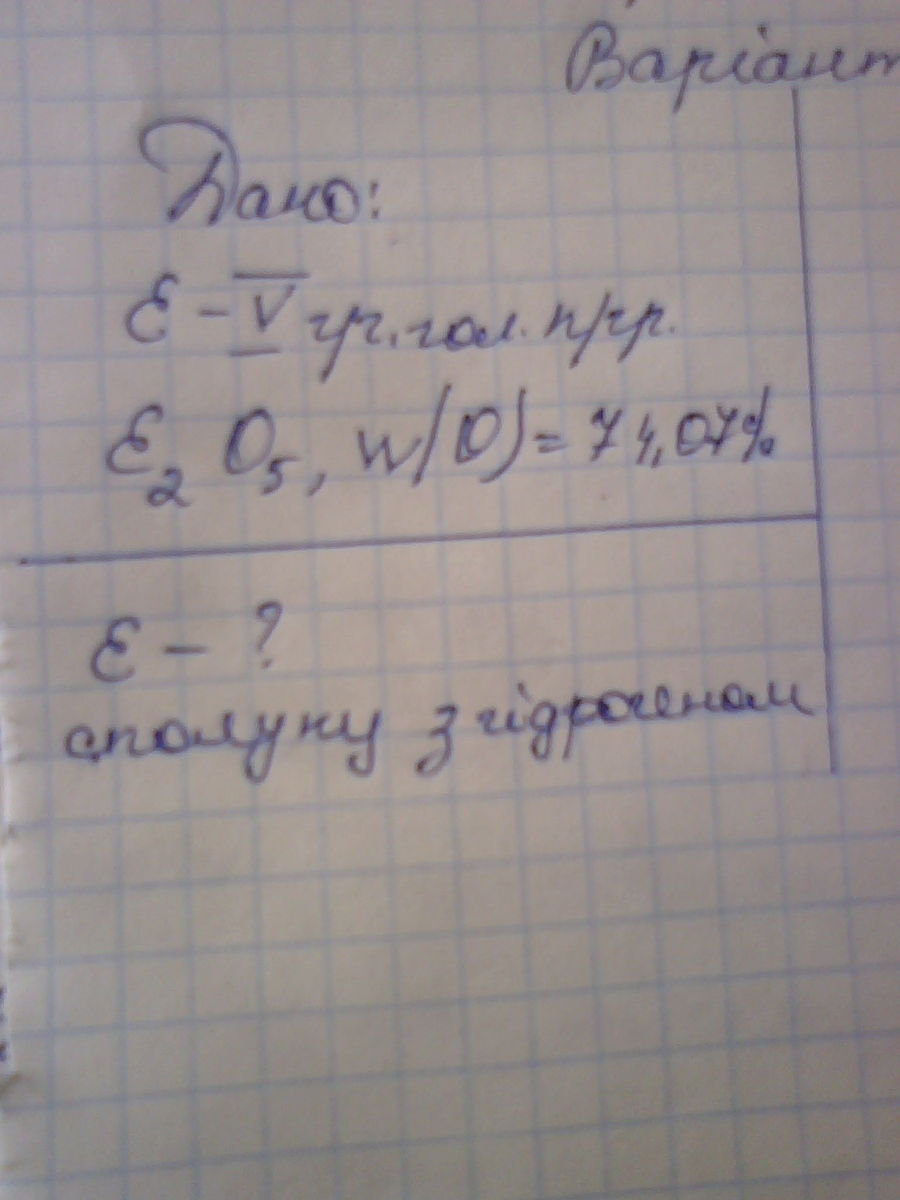 Варіант
Дано:
Е - V гр. гол. п/гр.
Е₂O₅, w(O) = 74,07%
Е - ?
сполуку з гідрогеном